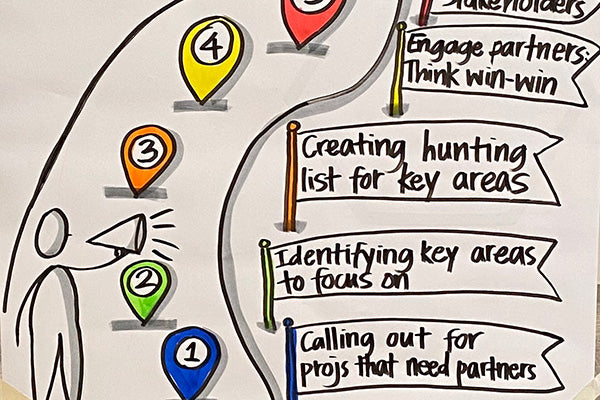 Stakeholders
4
Engage partners:
Think win-win
3
Creating hunting
list for key areas
2
Identifying key areas
to focus on
1
Calling out for
projs that need partners